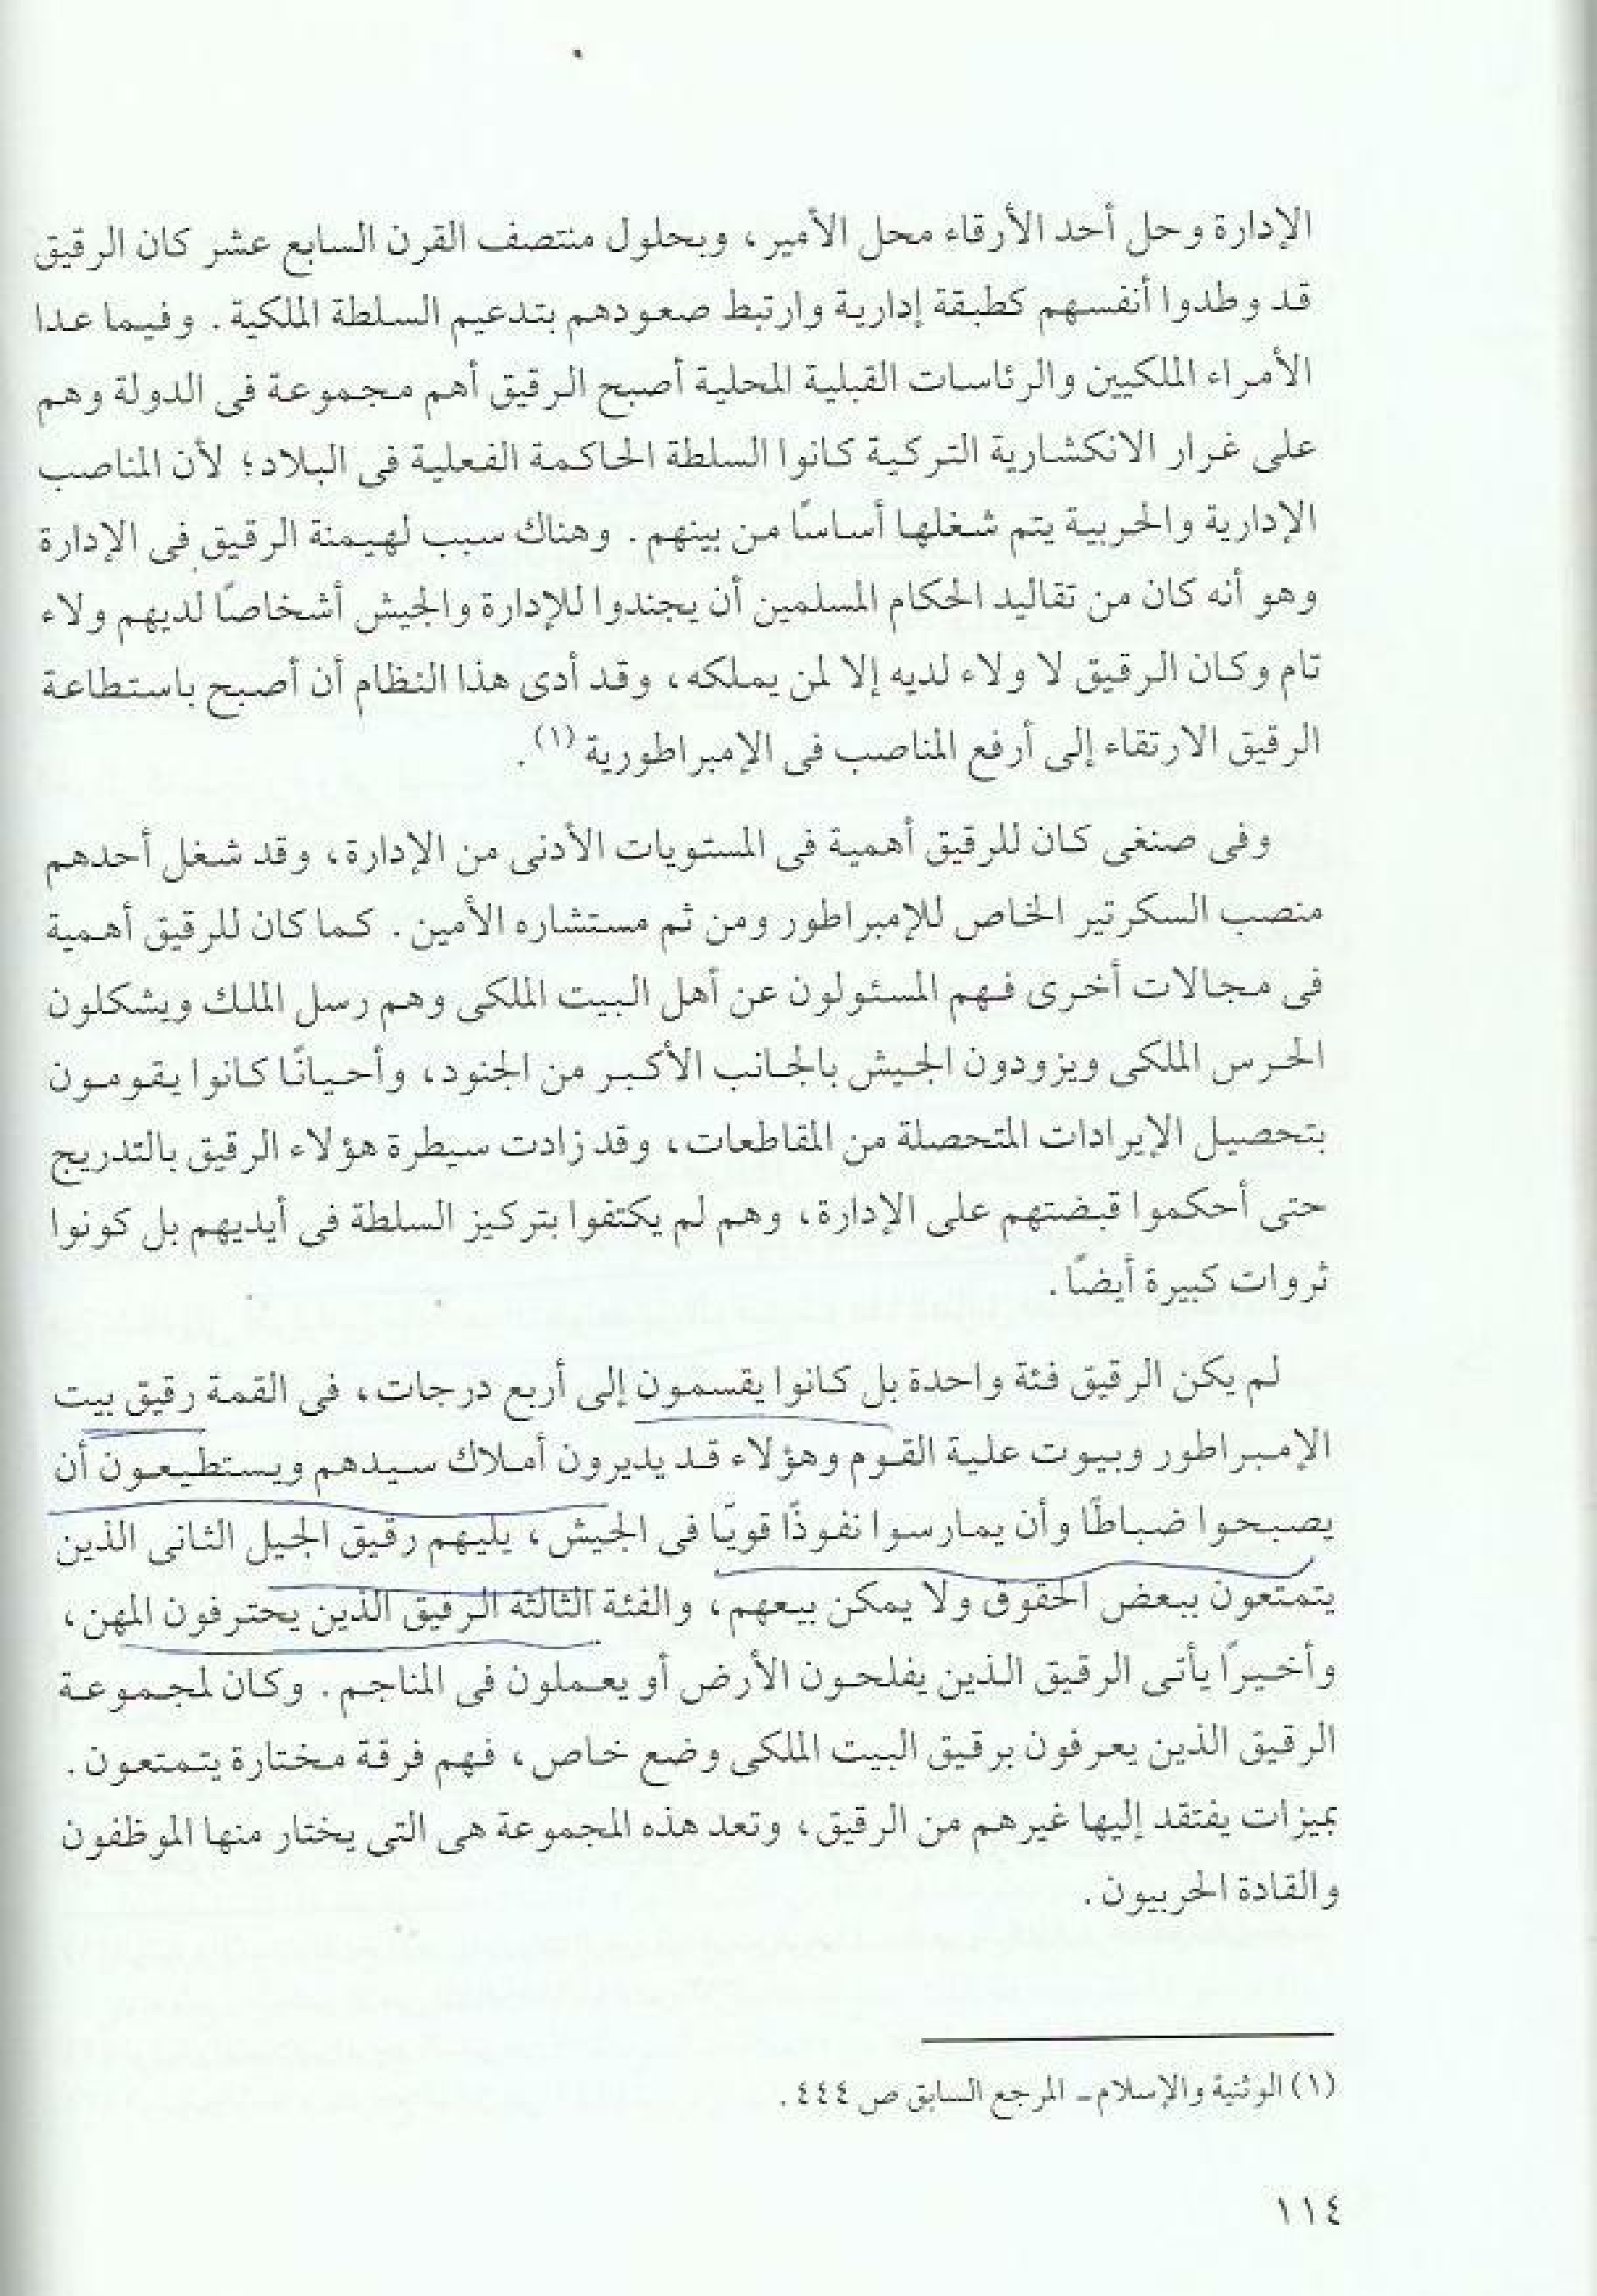 الإدارة وحل أحد الأرقاء محل الأمير، وبحلول منتصف القرن السابع عشر كان الرقيق
قد وطدوا أنفسهم كطبقة إدارية وارتبط صعودهم بتدعيم السلطة الملكية. وفيما عدا
الأمراء الملكيين والرئاسات القبلية المحلية أصبح الرقيق أهم مجموعة فى الدولة وهم
على غرار الانكشارية التركية كانوا السلطة الحاكمة الفعلية فى البلاد؛ لأن المناصب
الإدارية والحربية يتم شغلها أساسًا من بينهم. وهناك سبب لهيمنة الرقيق فى الإدارة
وهو أنه كان من تقاليد الحكام المسلمين أن يجندوا للإدارة والجيش أشخاصًا لديهم ولاء
تام وكان الرقيق لا ولاء لديه إلا لمن يملكه، وقد أدى هذا النظام أن أصبح باستطاعة
الرقيق الارتقاء إلى أرفع المناصب فى الإمبراطورية (١).
وفى صنغى كان للرقيق أهمية فى المستويات الأدنى من الإدارة، وقد شغل أحدهم
منصب السكرتير الخاص للإمبراطور ومن ثم مستشاره الأمين. كما كان للرقيق أهمية
فى مجالات أخرى فهم المسئولون عن أهل البيت الملكى وهم رسل الملك ويشكلون
الحرس الملكى ويزودون الجيش بالجانب الأكبر من الجنود، وأحيانًا كانوا يقومون
بتحصيل الإيرادات المتحصلة من المقاطعات، وقد زادت سيطرة هؤلاء الرقيق بالتدريج
حتى أحكموا قبضتهم على الإدارة، وهم لم يكتفوا بتركيز السلطة فى أيديهم بل كونوا
ثروات كبيرة أيضًا.
لم يكن الرقيق فئة واحدة بل كانوا يقسمون إلى أربع درجات، فى القمة رقيق بيت
الإمبراطور وبيوت علية القوم وهؤلاء قد يديرون أملاك سيدهم ويستطيعون أن
يصبحوا ضباطًا وأن يمارسوا نفوذًا قويًا فى الجيش، يليهم رقيق الجيل الثانى الذين
يتمتعون ببعض الحقوق ولا يمكن بيعهم، والفئة الثالثة الرقيق الذين يحترفون المهن،
وأخيرًا يأتى الرقيق الذين يفلحون الأرض أو يعملون فى المناجم. وكان لمجموعة
الرقيق الذين يعرفون برقيق البيت الملكى وضع خاص، فهم فرقة مختارة يتمتعون.
بميزات يفتقد إليها غيرهم من الرقيق، وتعد هذه المجموعة هى التى يختار منها الموظفون
والقادة الحربيون.
(١) الوثنية والإسلام - المرجع السابق ص ٤٤٤.
١١٤